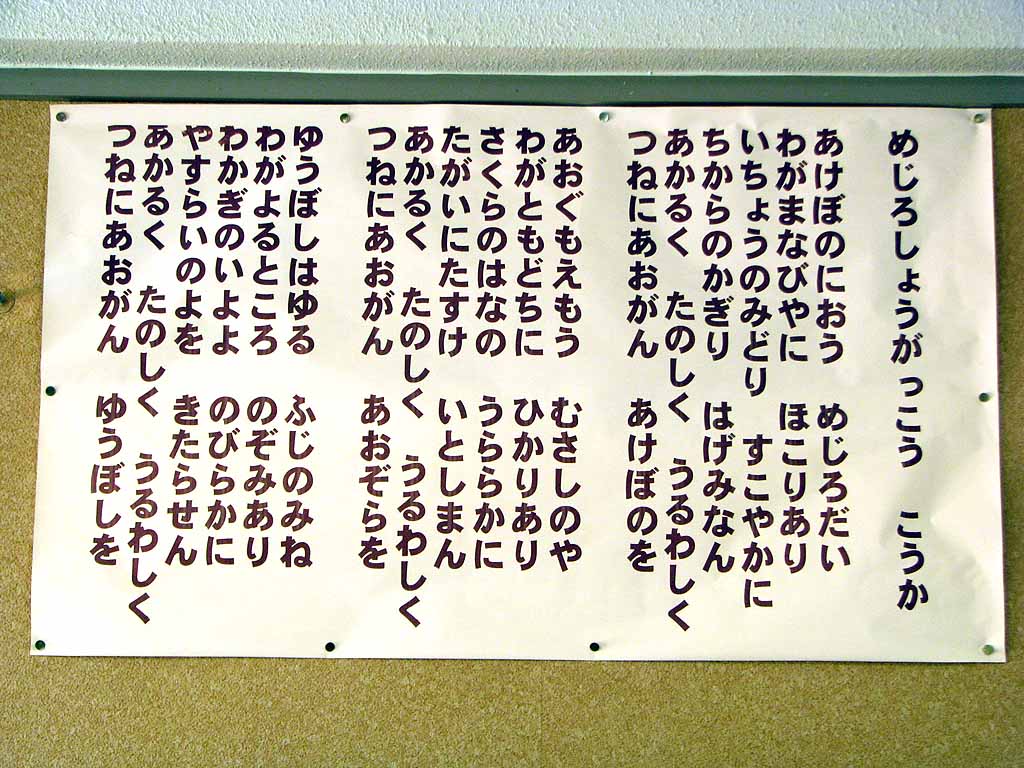 めじろしょうがっこう　こうか
あけぼのにおう　めじろだい
わがまなびやに　ほこりあり
いちょうのみどり　すこやかに
ちからのかぎり　はげみなん
あかるく　たのしく　うるわしく
つねにあおがん　あけぼのを
あおぐもえもう　むさしのや
わがともどちに　ひかりあり
さくらのはなの　うららかに
たがいにたすけ　いとしまん
あかるく　たのしく　うるわしく
つねにあおがん　あおぞらを
ゆうぼしはゆる　ふじのみね
わがよるところ　のぞみあり
わかぎのいよよ　のびらかに
やすらいのよを　きたらせん
あかるく　たのしく　うるわしく
つねにあおがん　ゆうぼしを